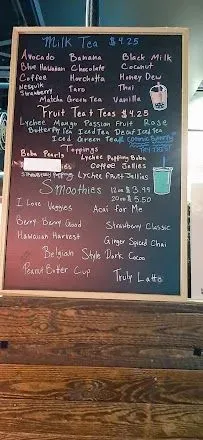 Milk Tea $4.25
Avocado Banana Black Milk
Blue Hawaiian Chocolate Coconut
Coffee Horchatta Honey Dew
Nesquik Strawberry Taro Thai
Matcha Green Tea Vanilla
Fruit Tea & Teas $4.25
Lychee Mango Passion Fruit Rose
Butterfly Tea Iced Tea Decaf Iced Tea
Iced Green Tea
Toppings
Boba Pearls Lychee Popping Boba
Coffee Jellies
Strawberry Lychee Fruit Jellies
Smoothies 12oz $3.99
20oz $5.50
I Love Veggies Acai for Me
Berry Berry Good Strawberry Classic
Hawaiian Harvest Ginger Spiced Chai
Belgian Style Dark Cocoa
Peanut Butter Cup Truly Latte